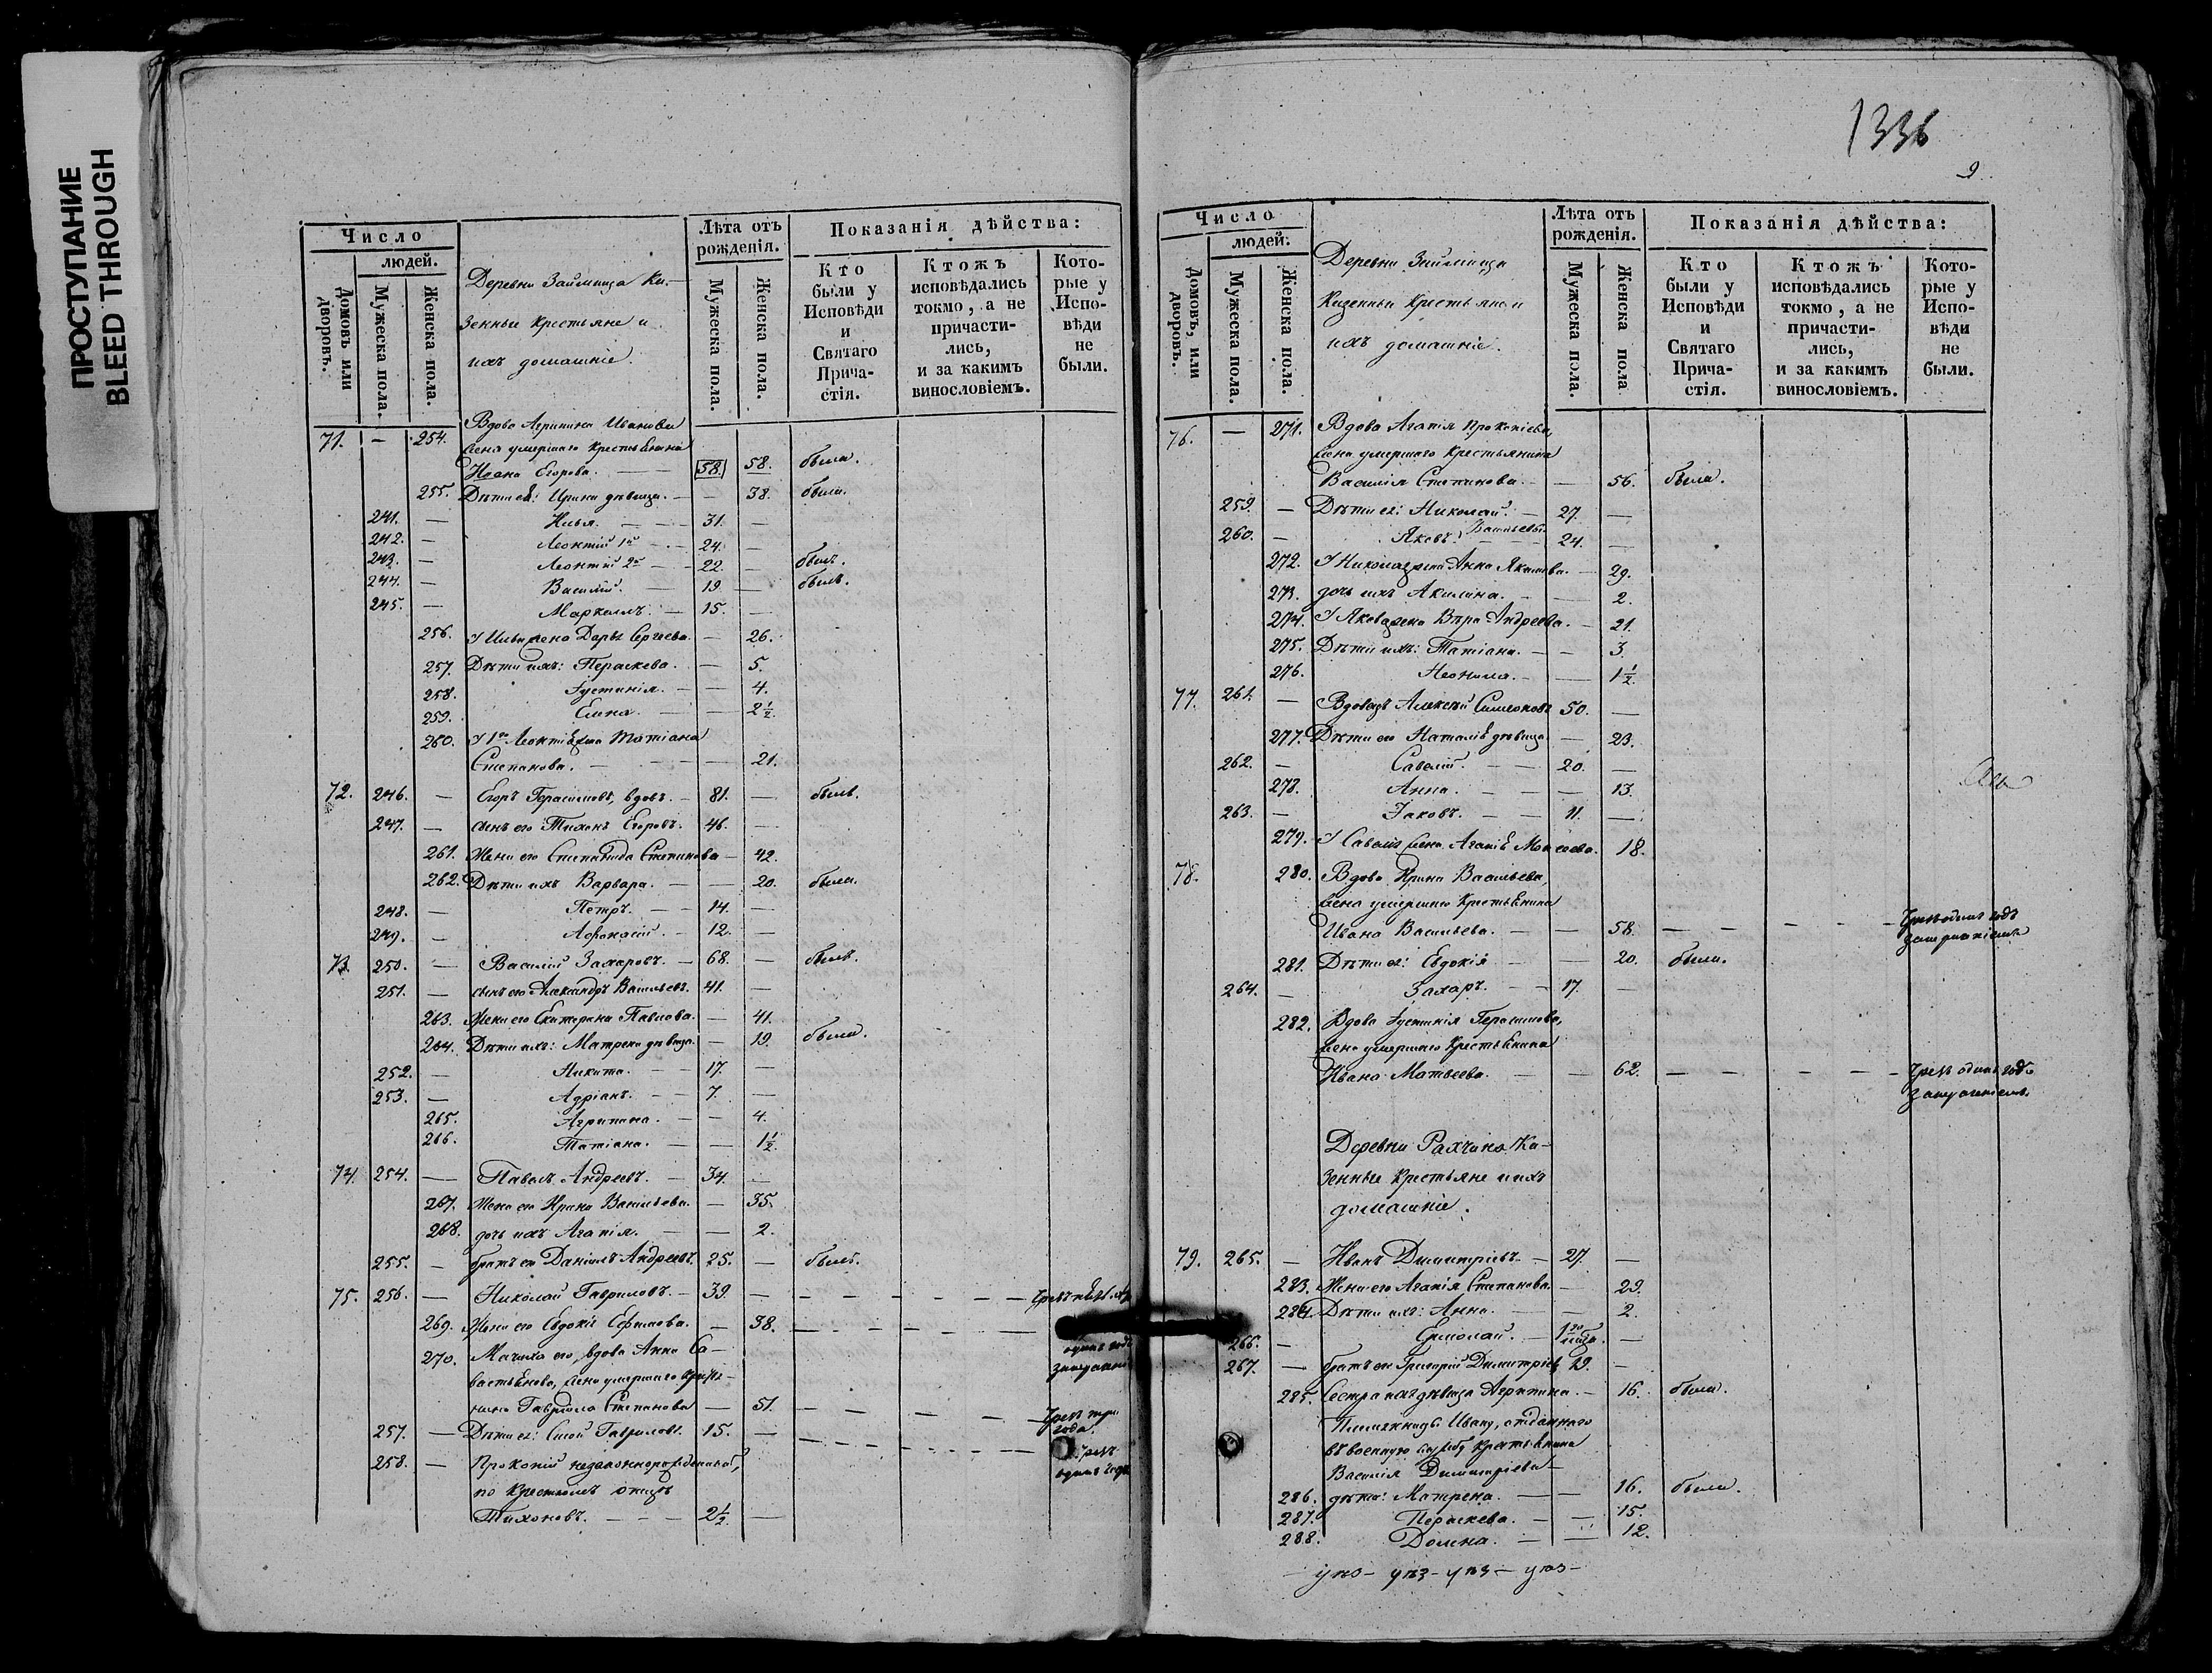 ПРОСТУПАНИЕ
BLEED THROUGH
Число
людей.
Домовъ или дворовъ.
Мужеска пола.
Женска пола.
Деревни Займища Ка-
зенные крестьяне и
ихъ домашніе.
Лѣта отъ рожденія.
Мужеска пола.
Женска пола.
Показанія дѣйства:
Кто были у Исповѣди и Святаго Прича-стія.
Ктожъ исповѣдались токмо, а не причасти-лись, и за какимъ винословіемъ.
Кото-рые у Испо-вѣди не были.
71. — 254. Вдова Агрипина Иванова
жена умершаго крестьянина
Ивана Егорова. — 58. 58. была.
255. Дѣти ея: Ирина дѣвица. — — 38. была.
241. — Илья. — 31. —
242. — Леонтій 1й — 24. —
243. — Леонтій 2й — 22. — былъ.
244. — Василій. — 19. — былъ.
245. — Маркеллъ. — 15. —
256. У Ильи жена Дарья Сергеева. — 26.
257. Дѣти ихъ: Параскева. — 5.
258. Іустинія. — — 4.
259. Елена. — — 2½.
260. У 1го Леонтія жена Татіана
Степанова. — — 21.
72. 246. — Егоръ Герасимовъ, вдовъ. — 81. — былъ.
247. — сынъ его Тихонъ Егоровъ. 46. —
261. Жена его Степанида Степанова — 42.
262. Дѣти ихъ Варвара. — — 20. была.
248. — Петръ. — 14. —
249. — Афанасій. — 12. —
73. 250. — Василій Захаровъ. — 68. — былъ.
251. — сынъ его Александръ Васильевъ. 41. —
263. Жена его Екатерина Павлова. — 41.
264. Дѣти ихъ: Матрена дѣвица. — 19. была.
252. — Никита. — 17. —
253. — Адріанъ. — 7. —
265. Агрипина. — — 4.
266. Татіана. — — 1½.
74. 254. — Павелъ Андреевъ. — 34. —
267. Жена его Ирина Васильева. — 35.
268. дочь ихъ Агапія. — — 2.
255. — братъ его Даніилъ Андреевъ. 25. — былъ.
75. 256. — Николай Гавриловъ. — 39. —
269. Жена его Евдокія Ефимова. — 38.
одинъ годъ
270. Мачиха его, вдова Анна Са-
вастьянова, жена умершаго крестья-
нина Гавріила Степанова — 51.
чрезъ три
года.
257. — Дѣти ея: Сисой Гавриловъ. 15. —
чрезъ
одинъ годъ
258. — Прокопій незаконнорожденный,
по крестномъ отцѣ
Тихоновъ. — — — 2½. —
1336
9
Число
людей.
Домовъ, или дворовъ.
Мужеска пола.
Женска пола.
Деревни Займища
Казенные крестьяне и
ихъ домашніе.
Лѣта отъ рожденія.
Мужеска пола.
Женска пола
Показанія дѣйства:
Кто были у Исповѣди и Святаго Прича-стія.
Ктожъ исповѣдались токмо, а не причасти-лись, и за какимъ винословіемъ.
Кото-рые у Испо-вѣди не были.
76. — 271. Вдова Агапія Прокопіева,
жена умершаго крестьянина
Василія Степанова. — — 56. была.
259. — Дѣти ея: Николай. — 27. —
260. — Яковъ Васильевы. 24. —
272. У Николая жена Анна Якимова. — 29.
273. дочь ихъ Акилина. — — 2.
274. У Якова жена Вѣра Андреева. — 21.
275. Дѣти ихъ: Татіана. — — 3.
276. Неонила. — — 1½.
77. 261. — Вдовецъ Алексѣй Симеоновъ 50. —
277. Дѣти его Наталія дѣвица. — 23.
262. — Савелій. — — 20. —
278. Анна. — — — 13.
263. — Іаковъ. — — 11. —
279. У Савелія жена Агапія Моисеева. 18.
78. 280. Вдова Ирина Васильева,
жена умершаго крестьянина
Ивана Васильева. — — 58. — — — —
Чрезъ одинъ годъ
281. Дѣти ея: Евдокія — — 20. была.
264. — Захаръ. — — 17. —
282. Вдова Іустинія Герасимова,
жена умершаго крестьянина
Ивана Матвеева. — — 62. — — — — —
Чрезъ одинъ годъ
Деревни Рахчина Ка-
зенные крестьяне и ихъ
домашніе.
79. 265. — Иванъ Димитріевъ. — 27. —
283. Жена его Агапія Степанова. — 29.
284. Дѣти ихъ: Анна. — — 2.
266. — Ермолай. — 1го года. —
267. — братъ его Григорій Димитріевъ 19. —
285. Сестра ихъ дѣвица Агрипина. — 16. была.
Племянницы Ивану, отданнаго
въ военную службу крестьянина
Василія Димитріева —
286. дѣти: Матрена. — — 16. была.
287. Параскева. — — 15.
288. Домна. — — 12.